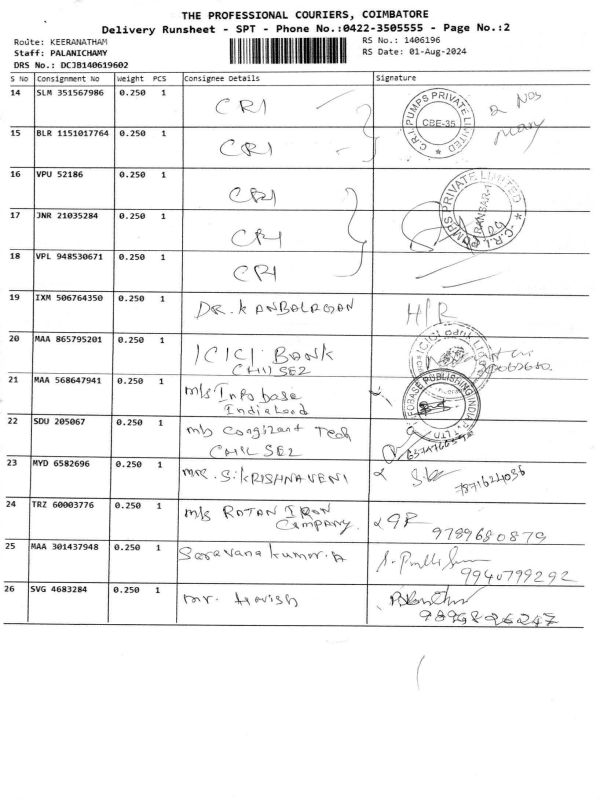 THE PROFESSIONAL COURIERS, COIMBATORE
Delivery Runsheet - SPT - Phone No.:0422-3505555 - Page No.:2
Route: KEERANATHAM
RS No.: 1406196
Staff: PALANICHAMY
RS Date: 01-Aug-2024
DRS No.: DCJB140619602
S No Consignment No Weight PCS Consignee Details Signature
14 SLM 351567986 0.250 1 CRI
C.R.I. PUMPS PRIVATE LIMITED
CBE-35
15 BLR 1151017764 0.250 1 CRI
16 VPU 52186 0.250 1 CRI
C.R.I. PUMPS PRIVATE LIMITED
17 JNR 21035284 0.250 1 CRI
18 VPL 948530671 0.250 1 CRI
19 IXM 506764350 0.250 1 DR. K ANBALAGAN H/R
20 MAA 865795201 0.250 1 ICICI BANK
CHIL SEZ
21 MAA 568647941 0.250 1 M/s Infobase
India Leod
22 SDU 205067 0.250 1 M/s Congizant Tech
CHIL SEZ
23 MYD 6582696 0.250 1 MRS. S. KRISHNAVENI
24 TRZ 60003776 0.250 1 M/s RATAN IRON
Company.
9789680879
25 MAA 301437948 0.250 1 Saravana kumar. A
9940799292
26 SVG 4683284 0.250 1 Mr.